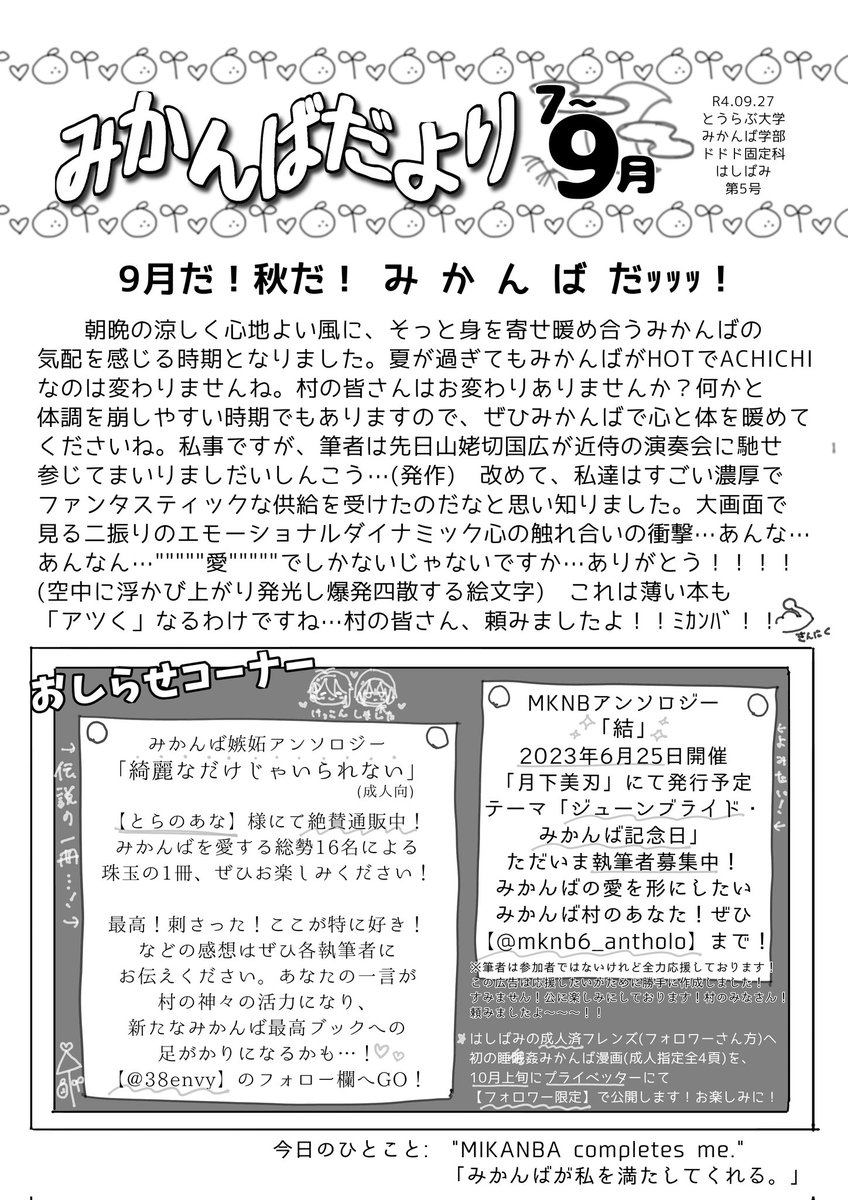 みかんばだより
7〜9月
R4.09.27
とうらぶ大学
みかんば学部
ドドド固定科
はしばみ
第5号
9月だ！秋だ！ みかんばだッッッ！
朝晩の涼しく心地よい風に、そっと身を寄せ暖め合うみかんばの
気配を感じる時期となりました。夏が過ぎてもみかんばがHOTでACHICHI
なのは変わりませんね。村の皆さんはお変わりありませんか？何かと
体調を崩しやすい時期でもありますので、ぜひみかんばで心と体を暖めて
くださいね。私事ですが、筆者は先日山姥切国広が近侍の演奏会に馳せ
参じてまいりましだいしんこう…(発作)　改めて、私達はすごい濃厚で
ファンタスティックな供給を受けたのだなと思い知りました。大画面で
見る二振りのエモーショナルダイナミック心の触れ合いの衝撃…あんな…
あんなん…"""""愛"""""でしかないじゃないですか…ありがとう！！！！
(空中に浮かび上がり発光し爆発四散する絵文字)　これは薄い本も
「アツく」なるわけですね…村の皆さん、頼みましたよ！！ﾐｶﾝﾊﾞ！！
さんにく
おしらせコーナー
けっこん しました
→伝説の一冊…！→
みかんば嫉妬アンソロジー
「綺麗なだけじゃいられない」
(成人向)
【とらのあな】様にて絶賛通販中！
みかんばを愛する総勢16名による
珠玉の1冊、ぜひお楽しみください！
最高！刺さった！ここが特に好き！
などの感想はぜひ各執筆者に
お伝えください。あなたの一言が
村の神々の活力になり、
新たなみかんば最高ブックへの
足がかりになるかも…！
【@38envy】のフォロー欄へGO！
MKNBアンソロジー
「結」
2023年6月25日開催
「月下美刃」にて発行予定
テーマ「ジューンブライド・
みかんば記念日」
ただいま執筆者募集中！
みかんばの愛を形にしたい
みかんば村のあなた！ぜひ
【@mknb6_antholo】まで！
※筆者は参加者ではないけれど全力応援しております！
この広告は応援したいがために勝手に作成しました！
すみません！公に楽しみにしております！村のみなさん！
頼みましたよ〜〜〜！！
はしばみの成人済フレンズ(フォロワーさん方)へ
初の睡眠姦みかんば漫画(成人指定全4頁)を、
10月上旬にプライベッターにて
【フォロワー限定】で公開します！お楽しみに！
今日のひとこと:　"MIKANBA completes me."
「みかんばが私を満たしてくれる。」